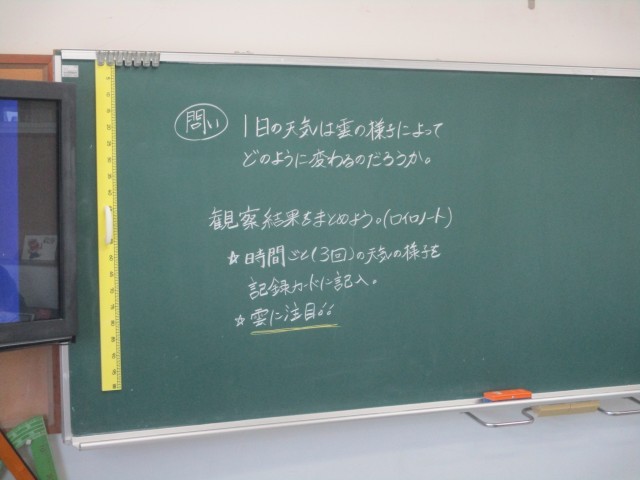 問い 1日の天気は雲の様子によって
どのように変わるのだろうか。
観察結果をまとめよう。(ロイロノート)
☆時間ごと(3回)の天気の様子を
記録カードに記入。
☆雲に注目!!